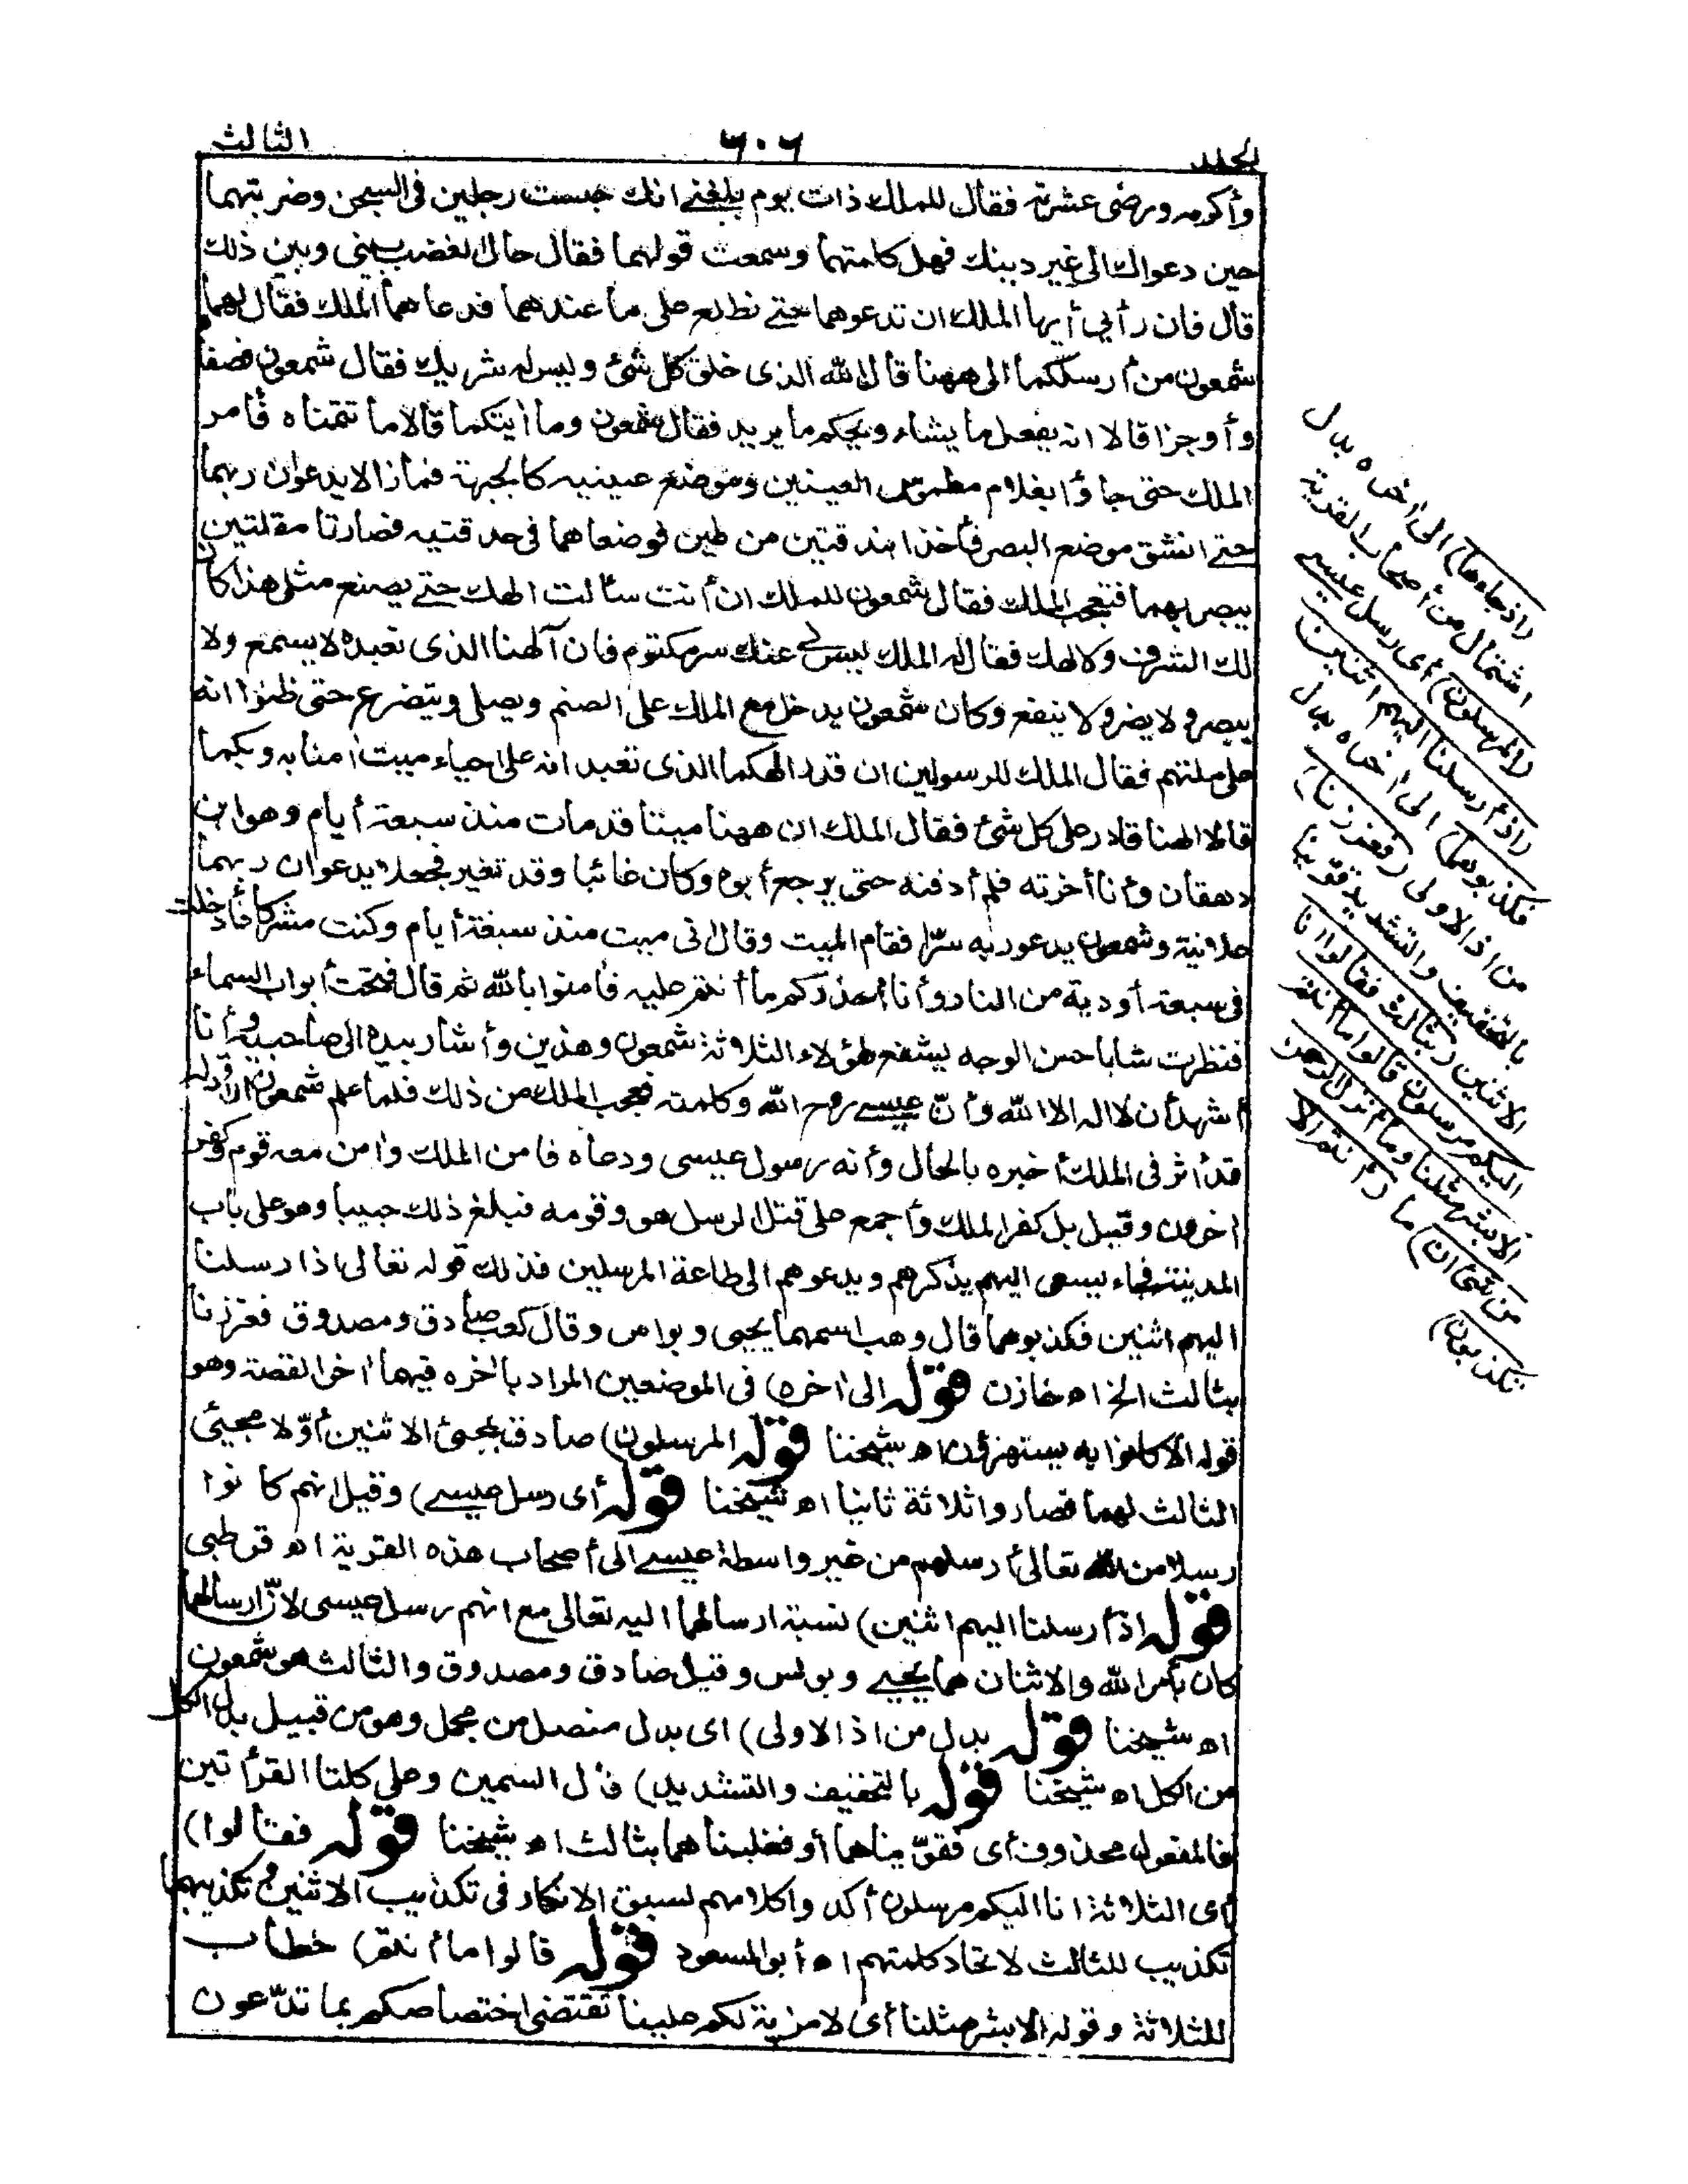 الجلد ٦٠٦ الثالث
وأكرمه ورضى عشرته فقال للملك ذات يوم بلغني انك حبست رجلين في السجن وضربتهما
حين دعواك الى غير دينك فهل كلمتهما وسمعت قولهما فقال حال الغضب بيني وبين ذلك
قال فان رأيى أيها الملك ان تدعوهما حتى نطلع على ما عندهما فدعاهما الملك فقال لهما
شمعون من أرسلكما الى ههنا قالا الله الذى خلق كل شئ وليس له شريك فقال شمعون فصفا
وأوجزا قالا انه يفعل ما يشاء ويحكم ما يريد فقال شمعون وما أيتكما قالا ما تتمناه فأمر
الملك حتى جاؤا بغلام مطموس العينين وموضع عينيه كالجبهة فمازالا يدعوان ربهما
حتى انشق موضع البصر فأخذا بندقتين من طين فوضعاهما في حدقتيه فصارتا مقلتين
يبصر بهما فتعجب الملك فقال شمعون للملك ان أنت سألت الهك حتى يصنع مثل هذا كان
لك الشرف ولالهك فقال له الملك ليس لي عنك سر مكتوم فان آلهنا الذى نعبده لا يسمع ولا
يبصر ولا يضر ولا ينفع وكان شمعون يدخل مع الملك على الصنم ويصلى ويتضرع حتى ظنوا انه
على ملتهم فقال الملك للرسولين ان قدر الهكما الذى تعبدانه على احياء ميت امنا به وبكما
قالا الهنا قادر على كل شئ فقال الملك ان ههنا ميتا قد مات منذ سبعة أيام وهو ابن
دهقان وأنا أخرته فلم أدفنه حتى يرجع أبوه وكان غائبا وقد تغير فجعلا يدعوان ربهما
علانية وشمعون يدعو ربه سرّا فقام الميت وقال انى ميت منذ سبعة أيام وكنت مشركا فأدخلت
في سبعة أودية من النار وأنا أحذركم ما أنتم عليه فامنوا بالله ثم قال فتحت أبواب السماء
فنظرت شابا حسن الوجه يشفع لهؤلاء الثلاثة شمعون وهذين وأشار بيده الى صاحبيه وأنا
أشهد أن لا اله الا الله وأن عيسى روح الله وكلمته فعجب الملك من ذلك فلما علم شمعون ان قوله
قد أثر في الملك أخبره بالحال وأنه رسول عيسى ودعاه فامن الملك وامن معه قوم وكفر
اخرون وقيل بل كفر الملك وأجمع على قتل الرسل هو وقومه فبلغ ذلك حبيبا وهو على باب
المدينة فجاء يسعى اليهم يذكرهم ويدعوهم الى طاعة المرسلين فذلك قوله تعالى اذ ارسلنا
اليهم اثنين فكذبوهما قال وهب اسمهما يحيى وبولس وقال كعب صادق ومصدوق فعززنا
بثالث الخ اه خازن قوله الى اخره) في الموضعين المراد بالخره فيهما اخر القصة وهو
قوله الا كانوا به يستهزؤن اه شيخنا قوله المرسلون) صادق بمجئ الاثنين أوّلا ومجيئ
الثالث لهما فصاروا ثلاثة ثانيا اه شيخنا قوله أى رسل عيسى) وقيل انهم كانوا
رسلا من الله تعالى أرسلهم من غير واسطة عيسى الى أصحاب هذه القرية اه قرطبى
قوله اذ أرسلنا اليهم اثنين) نسبة ارسالهما اليه تعالى مع انهم رسل عيسى لان ارسالهما
كان بأمر الله والاثنان هما يحيى وبولس وقيل صادق ومصدوق والثالث هو شمعون
اه شيخنا قوله بدل من اذ الاولى) اى بدل مفصل من مجمل وهو من قبيل بدل الكل
من الكل اه شيخنا قوله بالتخفيف والتشديد) قال السمين وعلى كلتا القرأتين
فالمفعول محذوف أى فقوّيناهما أو فغلبناهما بثالث اه شيخنا قوله فقالوا)
أى الثلاثة انا اليكم مرسلون أكدوا كلامهم لسبق الانكار في تكذيب الاثنين وتكذيبهما
تكذيب للثالث لاتحاد كلمتهم اه أبو السعود قوله قالوا ما أنتم) خطاب
للثلاثة وقوله الا بشر مثلنا أى لا مزية لكم علينا تقتضى اختصاصكم بما تدّعون
(اذ جاءها) الى اخره بدل
اشتمال من أصحاب القرية
(المرسلون) أى رسل عيسى
(اذ أرسلنا اليهم اثنين
فكذبوهما) الى اخره بدل
من اذ الاولى (فعززنا)
بالتخفيف والتشديد قوينا
الاثنين (بثالث فقالوا انا
اليكم مرسلون قالوا ما أنتم
الا بشر مثلنا وما أنزل الرحمن
من شئ ان) ما (أنتم الا
تكذبون)